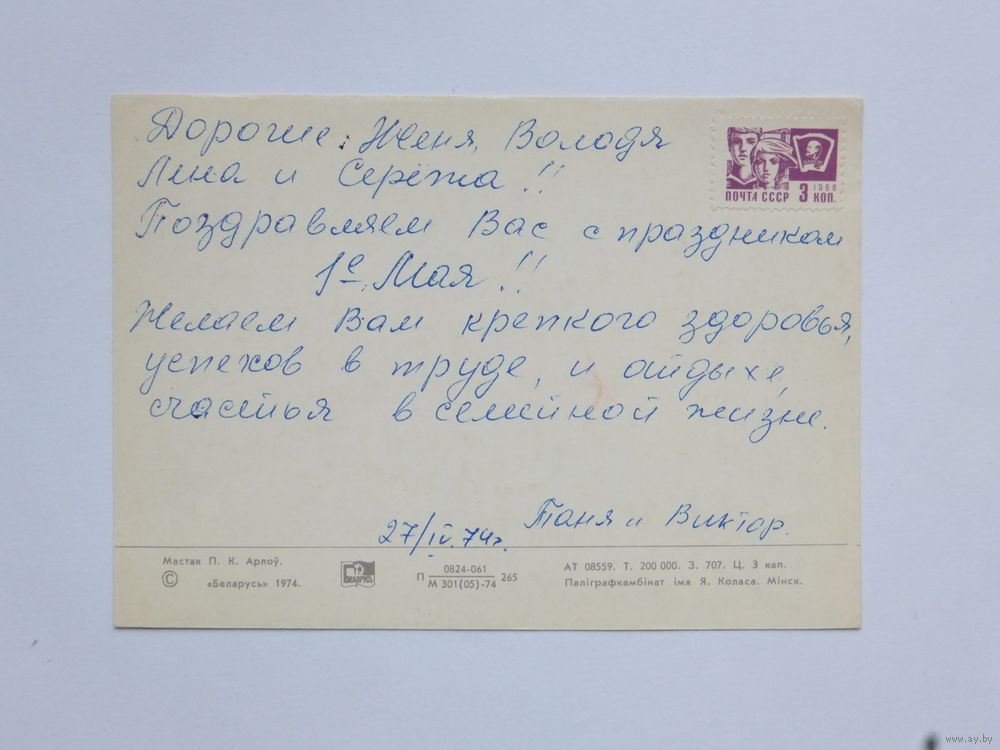 Дорогие: Женя, Володя
Лена и Сережа!!
Поздравляем Вас с праздником
1е Мая!!
Желаем Вам крепкого здоровья,
успехов в труде, и отдыхе,
счастья в семейной жизне.
27/IV.74г.
Таня и Виктор.
ПОЧТА СССР 3 КОП.
1966
Мастак П. К. Арлоў.
© «Беларусь» 1974.
БЕЛАРУСЬ
П 0824-061 265
М 301(05)-74
АТ 08559. Т. 200 000. З. 707. Ц. 3 кап.
Паліграфкамбінат імя Я. Коласа. Мінск.
www.ay.by